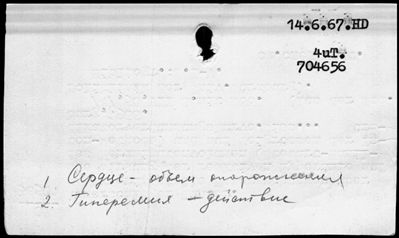 14.6.67.HD
4uT.
704656
1 Сердце - объем опорожнения
2. Гиперемия - действие